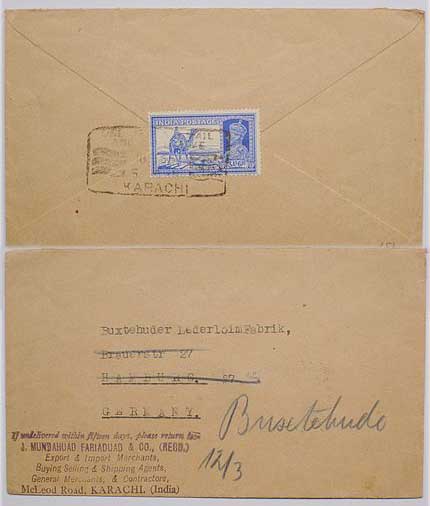 INDIA POSTAGE
KARACHI
Buxtehuder LederleimFabrik,
Brauerstr 27
HAMBURG. 27
GERMANY.
Busetehudo
12/3
If undelivered within fifteen days, please return to:
J. MUNDAHUAD FARIADUAD & CO., (REGD.)
Export & Import Merchants,
Buying Selling & Shipping Agents,
General Merchants, & Contractors,
McLeod Road, KARACHI. (India)